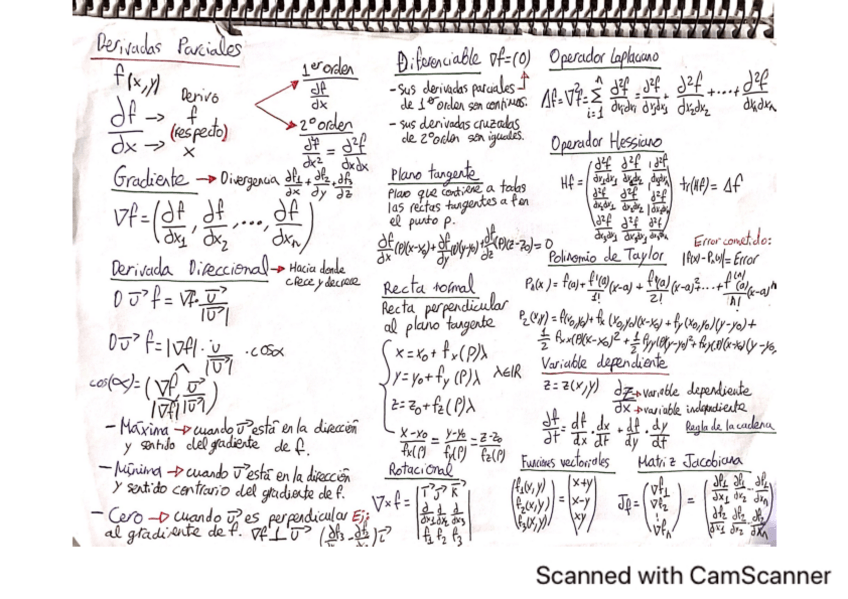 Derivadas Parciales
f(x,y)
∂f → Derivo f
(respecto)
∂x → x
1er orden
∂f/∂x
2º orden
∂²f/∂x² = ∂²f/∂x∂x
Gradiente → Divergencia ∂f1/∂x + ∂f2/∂y + ∂f3/∂z
∇f = (∂f/∂x1, ∂f/∂x2, ..., ∂f/∂xn)
Derivada Direccional → Hacia donde
crece y decrece
D u⃗ f = ∇f · u⃗/|u⃗|
D u⃗ f = |∇f| · u/|u⃗| · cosα
cos(α) = (∇f/|∇f| u⃗/|u⃗|)
- Máxima → cuando u⃗ está en la dirección
y sentido del gradiente de f.
- Mínima → cuando u⃗ está en la dirección
y sentido contrario del gradiente de f.
- Cero → cuando u⃗ es perpendicular
al gradiente de f. ∇f ⊥ u⃗
Diferenciable ∇f = (0)
- sus derivadas parciales
de 1er orden son continuas.
- sus derivadas cruzadas
de 2º orden son iguales.
Plano tangente
Plano que contiene a todas
las rectas tangentes a f en
el punto p.
∂f/∂x (P)(x-x0) + ∂f/∂y (P)(y-y0) + ∂f/∂z (P)(z-z0) = 0
Recta normal
Recta perpendicular
al plano tangente
x = x0 + fx(P)λ
y = y0 + fy(P)λ λ∈ℝ
z = z0 + fz(P)λ
x-x0/fx(P) = y-y0/fy(P) = z-z0/fz(P)
Rotacional
∇×f = | i⃗ j⃗ k⃗ |
| ∂/∂x1 ∂/∂x2 ∂/∂x3 |
| f1 f2 f3 |
Ej:
(∂f3 - ∂f2) i⃗
Operador Laplaciano
Δf = ∇²f = Σ n i=1 ∂²f/∂xi∂xi = ∂²f/∂x1∂x1 + ∂²f/∂x2∂x2 + ... + ∂²f/∂xn∂xn
Operador Hessiano
Hf = tr(Hf) = Δf
Error cometido:
Polinomio de Taylor |f(x)-Pn(x)| = Error
Pn(x) = f(a) + f'(a)/1! (x-a) + f''(a)/2! (x-a)² + ... + f⁽ⁿ⁾(a)/n! (x-a)ⁿ
P2(x,y) = f(x0,y0) + fx(x0,y0)(x-x0) + fy(x0,y0)(y-y0) +
½ fxx(P)(x-x0)² + ½ fyy(P)(y-y0)² + fxy(P)(x-x0)(y-y0)
Variable dependiente
z = z(x,y) ∂z → variable dependiente
∂x → variable independiente
∂f/∂t = ∂f/∂x · ∂x/∂t + ∂f/∂y · ∂y/∂t Regla de la cadena
Funciones vectoriales
(f1(x,y)) = (x+y)
(f2(x,y)) (x-y)
(f3(x,y)) (xy)
Matriz Jacobiana
Jf = (∇f1 ∇f2 ⋮ ∇fn) = (∂f1/∂x1 ∂f1/∂x2 ... ∂f1/∂xn
∂f2/∂x1 ∂f2/∂x2 ∂f2/∂xn)
Scanned with CamScanner